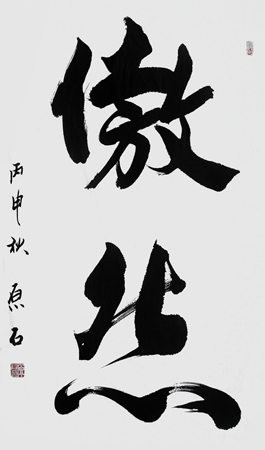 傲然
丙申秋 原石